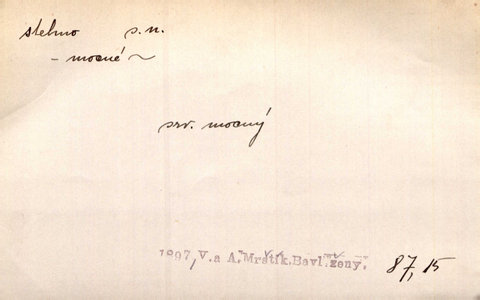 stehno s. n.
- mocné ~
srv. mocný
1897, V. a A. Mrštík. Bavl. ženy. 87, 15